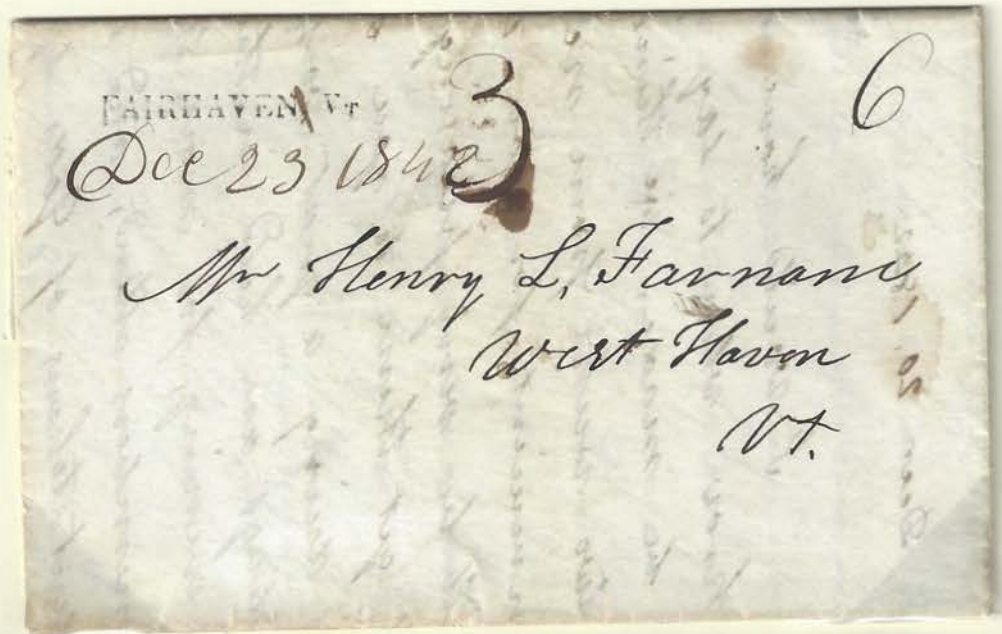 FAIRHAVEN Vt
3
6
Dec 23 1842
Mr Henry L, Farnam
West Haven
Vt.